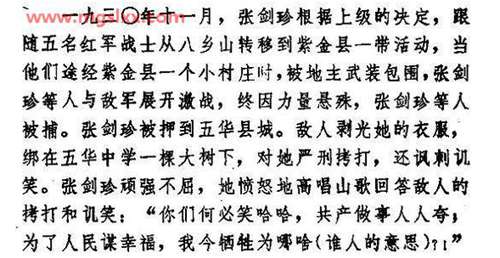 www.mgslkx.com
一九三〇年十一月，张剑珍根据上级的决定，跟
随五名红军战士从八乡山转移到紫金县一带活动，当
他们途经紫金县一个小村庄时，被地主武装包围，张剑
珍等人与敌军展开激战，终因力量悬殊，张剑珍等人
被捕。张剑珍被押到五华县城。敌人剥光她的衣服，
绑在五华中学一棵大树下，对她严刑拷打，还讽刺讥
笑。张剑珍顽强不屈，她愤怒地高唱山歌回答敌人的
拷打和讥笑：“你们何必笑哈哈，共产做事人人夸；
为了人民谋幸福，我今牺牲为哪哈（谁人的意思）？！”